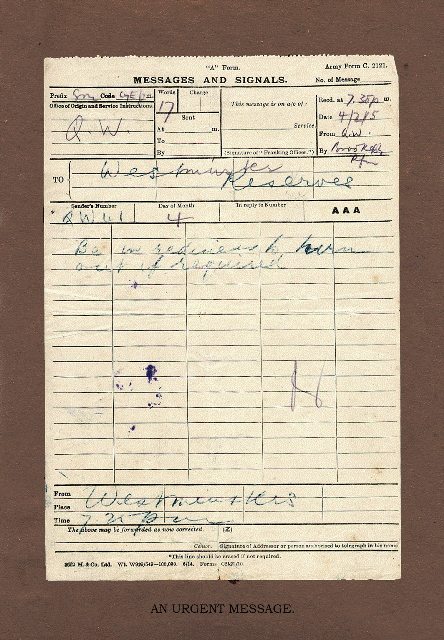 "A" Form.
Army Form C. 2121.
MESSAGES AND SIGNALS.
No. of Message
Prefix Sm Code m.
Words 17
Charge
Office of Origin and Service Instructions.
Q.W.
Sent
At m.
To
By
This message is on a/c of:
Service.
(Signature of "Franking Officer.")
Recd. at 7.35 p m.
Date 4/2/15
From Q.W.
By
TO Westminster
Reserves
Sender's Number
Day of Month
In reply to Number
AAA
QW41
4
Be in rediness to turn
out if required
From Westminsters
Place
Time 7.25 Pm
The above may be forwarded as now corrected.
(Z)
Censor.
Signature of Addressor or person authorised to telegraph in his name
*This line should be erased if not required.
M. & Co. Ltd. Wt. 6/14. Forms
AN URGENT MESSAGE.